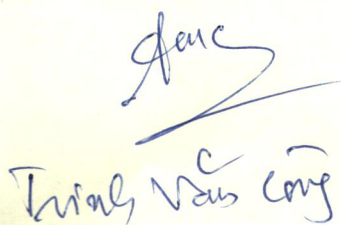 Trinh Văn Công